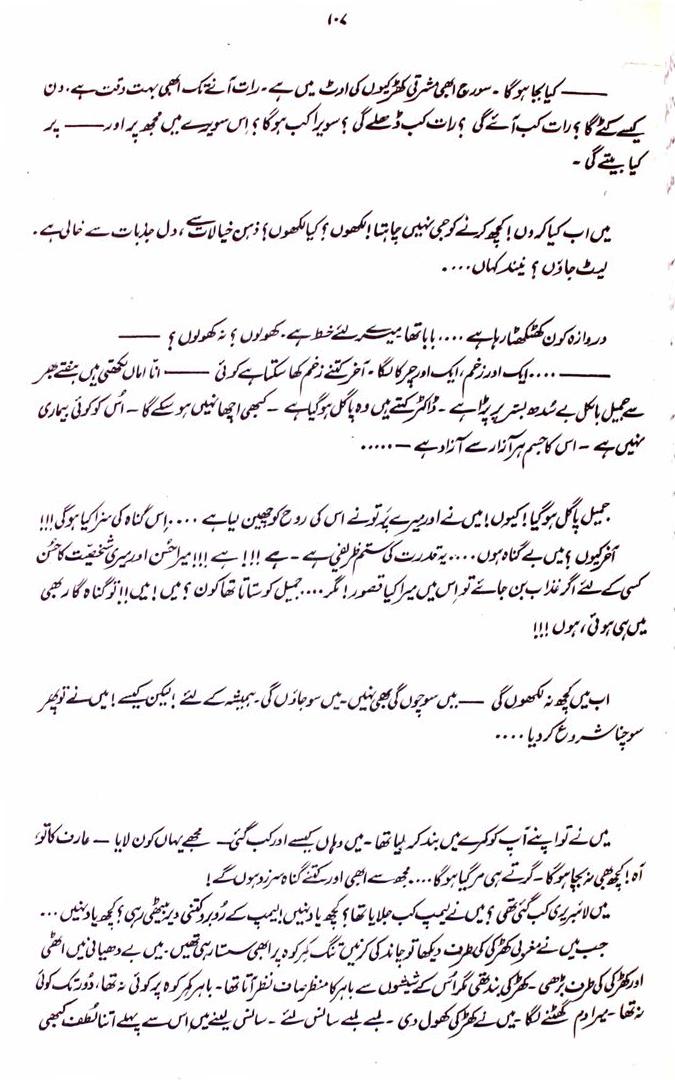 ۱۰۷
—— کیا بجا ہوگا ۔ سورج ابھی مشرقی کھڑکیوں کی اوٹ میں ہے ۔ رات آنے تک ابھی بہت وقت ہے ۔ دن
کیسے کٹے گا ؟ رات کب آئے گی ؟ رات کب ڈھلے گی ؟ سویرا کب ہوگا ؟ اِس سویرے میں مجھ پر اور —— پر
کیا بیتے گی ۔
میں اب کیا کروں ! کچھ کرنے کو جی نہیں چاہتا ! لکھوں ؟ کیا لکھوں ؟ ذہن خیالات سے ، دل جذبات سے خالی ہے ۔
لیٹ جاؤں ؟ نیند کہاں ....
دروازہ کون کھٹکھٹا رہا ہے .... بابا تھا میرے لئے خط ہے ۔ کھولوں ؟ نہ کھولوں ؟ ——
—— .... ایک اور زخم ، ایک اور چرکا لگا ۔ آخر کتنے زخم کھا سکتا ہے کوئی —— انّا اماں لکھتی ہیں ہفتے بھر
سے جمیل بالکل بے سُدھ بستر پر پڑا ہے ۔ ڈاکٹر کہتے ہیں وہ پاگل ہو گیا ہے ۔ کبھی اچھا نہیں ہو سکے گا ۔ اُس کو کوئی بیماری
نہیں ہے ۔ اس کا جسم ہر آزار سے آزاد ہے — .....
جمیل پاگل ہو گیا ! کیوں ! میں نے اور میرے پَرتو نے اس کی روح کو چھین لیا ہے .... اِس گناہ کی سزا کیا ہوگی !!!
آخر کیوں ؟ میں بے گناہ ہوں .... یہ قدرت کی ستم ظریفی ہے ۔ ہے !!! ہے !!! میرا حُسن اور میری شخصیّت کا حُسن
کسی کے لئے اگر عذاب بن جائے تو اِس میں میرا کیا قصور ! مگر .... جمیل کو ستاتا تھا کون ؟ میں ! میں !! تو گناہ گار بھی
میں ہی ہوئی ، ہوں !!!
اب میں کچھ نہ لکھوں گی —— میں سوچوں گی بھی نہیں ۔ میں سو جاؤں گی ۔ ہمیشہ کے لئے ! لیکن کیسے ! میں نے تو پھر
سوچنا شروع کر دیا ....
میں نے تو اپنے آپ کو کمرے میں بند کر لیا تھا ۔ میں وہاں کیسے اور کب گئی — مجھے یہاں کون لایا — عارف کا تو ،
آہ ! کچھ بھی نہ بچا ہوگا ۔ گرتے ہی مر گیا ہوگا .... مجھ سے ابھی اور کتنے گناہ سرزد ہوں گے !
میں لائبریری کب گئی تھی ؟ میں نے لیمپ کب جلایا تھا ؟ کچھ یاد نہیں ! لیمپ کے روبرو کتنی دیر بیٹھی رہی ؟ کچھ یاد نہیں ...
جب میں نے مغربی کھڑکی کی طرف دیکھا تو چاند کی کرنیں تنگ کمر کوہ پر ابھی سستا رہی تھیں ۔ میں بے دھیانی میں اٹھی
اور کھڑکی کی طرف بڑھی ۔ کھڑکی بند تھی مگر اُس کے شیشوں سے باہر کا منظر صاف نظر آتا تھا ۔ باہر کمر کوہ پر کوئی نہ تھا ، دُور تک کوئی
نہ تھا ۔ میرا دم گھٹنے لگا ۔ میں نے کھڑکی کھول دی ۔ لمبے لمبے سانس لئے ۔ سانس لینے میں اِس سے پہلے اتنا لُطف کبھی